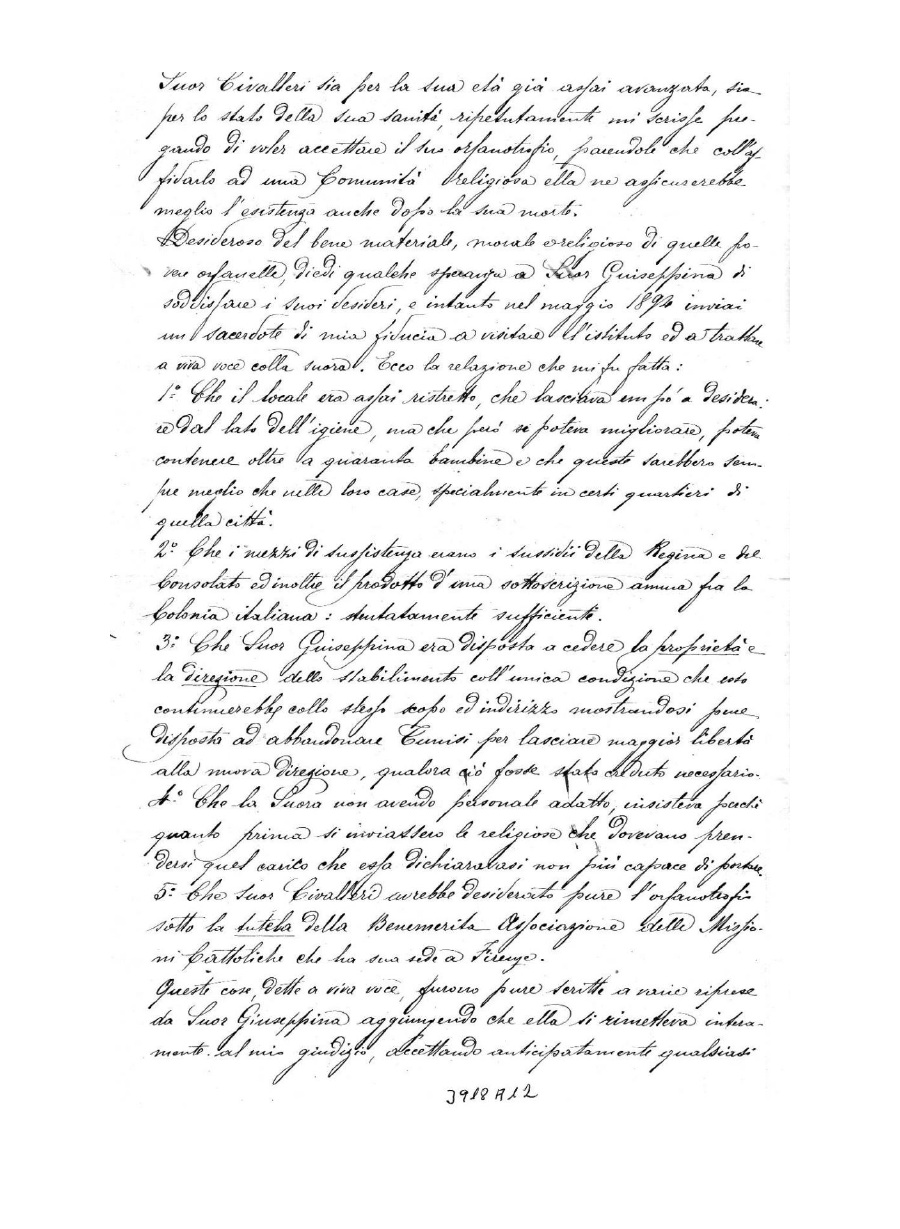 Suor Civalleri sia per la sua età già assai avanzata, sia
per lo stato della sua sanità, ripetutamente mi scrisse pre-
gando di voler accettare il suo orfanotrofio, parendole che coll'af
fidarlo ad una Comunità religiosa ella ne assicurerebbe
meglio l'esistenza anche dopo la sua morte.
Desideroso del bene materiale, morale e religioso di quelle po-
vere orfanelle, diedi qualche speranza a Suor Giuseppina di
soddisfare i suoi desideri, e intanto nel maggio 1894 inviai
un sacerdote di mia fiducia a visitare l'istituto ed a trattare
a viva voce colla suora. Ecco la relazione che mi fu fatta:
1° Che il locale era assai ristretto, che lasciava un pó a desidera-
re dal lato dell'igiene, ma che peró si poteva migliorare, poteva
contenere oltre a quaranta bambine e che queste sarebbero sem-
pre meglio che nelle loro case, specialmente in certi quartieri di
quella città.
2° Che i mezzi di sussistenza erano i sussidii della Regina e del
Consolato ed inoltre il prodotto d'una sottoscrizione annua fra la
Colonia italiana: stentatamente sufficiente.
3° Che Suor Giuseppina era disposta a cedere la proprietà e
la direzione dello stabilimento coll'unica condizione che esso
continuerebbe collo stesso scopo ed indirizzo mostrandosi pure
disposta ad abbandonare Tunisi per lasciare maggior libertà
alla nuova direzione, qualora ció fosse stato creduto necessario.
4° Che la Suora non avendo personale adatto, insisteva perché
quanto prima si inviassero le religiose che dovevano pren-
dersi quel carico che essa dichiaravasi non più capace di portare.
5° Che Suor Civalleri avrebbe desiderato pure l'orfanotrofio
sotto la tutela della Benemerita Associazione delle Missio-
ni Cattoliche che ha sua sede a Firenze.
Queste cose, dette a viva voce, furono pure scritte a varie riprese
da Suor Giuseppina aggiungendo che ella si rimetteva intera-
mente al mio giudizio, accettando anticipatamente qualsiasi
3918 A12